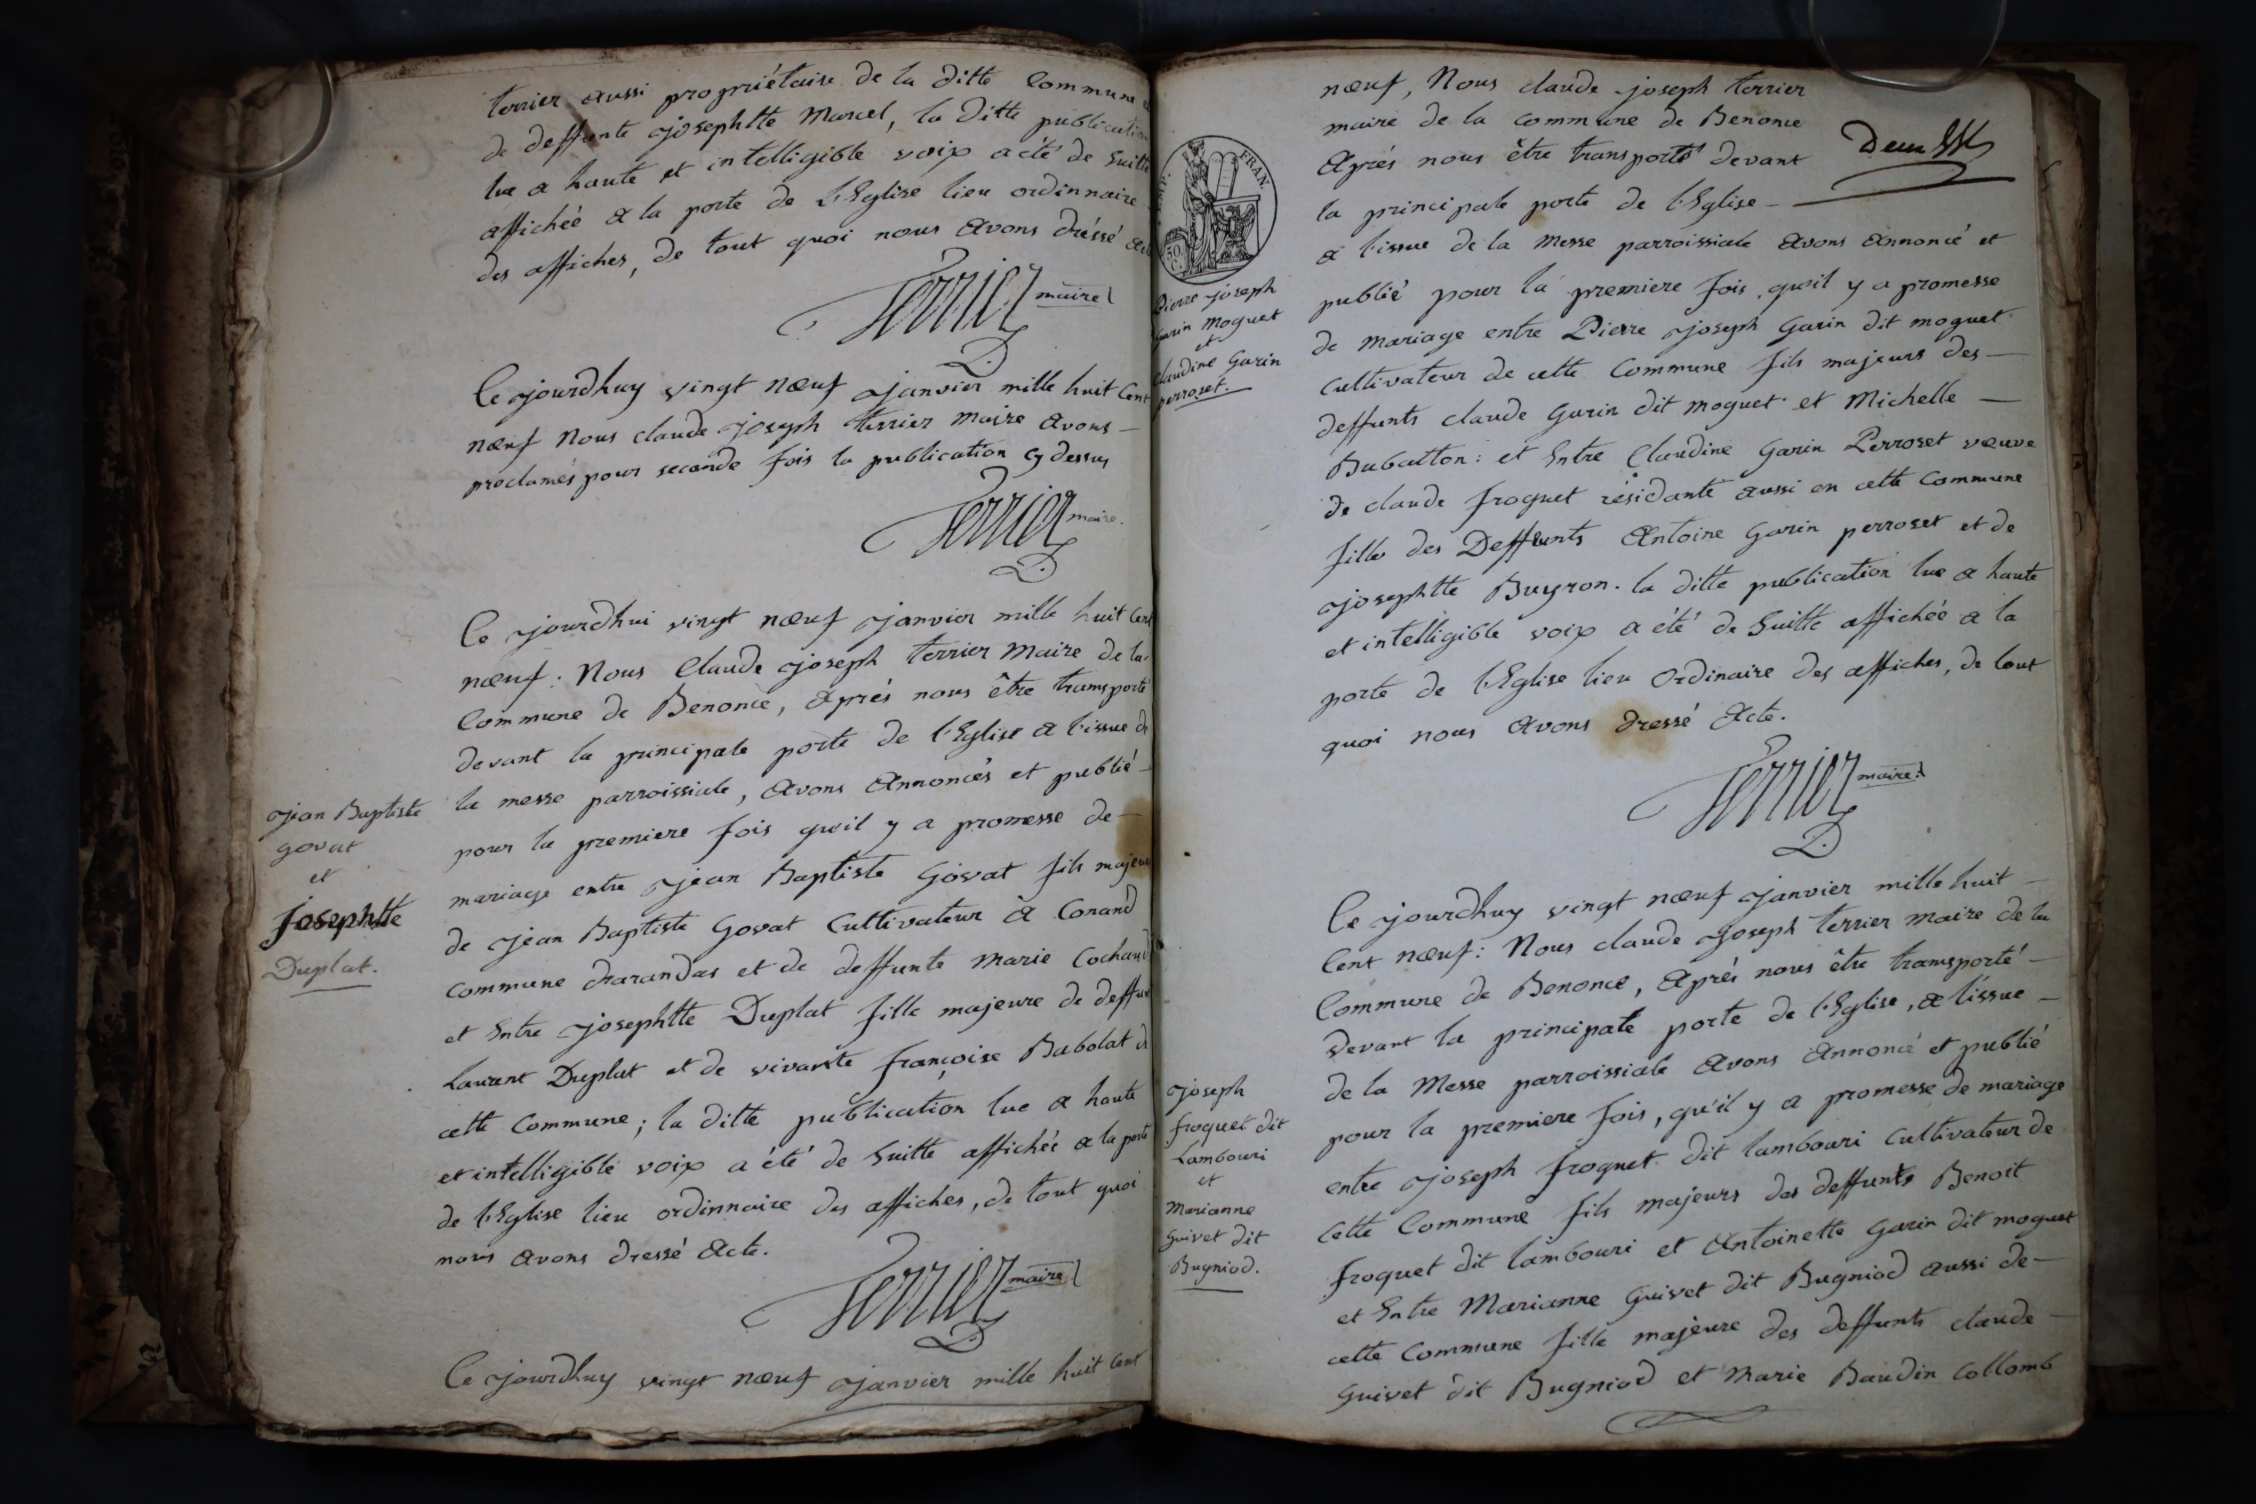 terrier aussi propriétaire de la ditte Commune
de deffunte josephtte Marcel, la ditte publication
lue a haute et intelligible voix a été de suitte
affichée a la porte de l'Eglise lieu ordinnaire
des affiches, de tout quoi nous avons dréssé
Terrier maire
Ce jourdhuy vingt nœuf janvier mille huit Cent
nœuf Nous claude joseph terrier maire avons
proclamés pour seconde fois la publication cy dessus
Terrier maire
Ce jourdhui vingt nœuf janvier mille huit Cent
nœuf: Nous Claude joseph terrier Maire de la
Commune de Benonce, aprés nous être transporté
devant la principale porte de l'Eglise a l'issue de
la messe parroissiale, avons annoncés et publié
pour la premiere fois qu'il y a promesse de
mariage entre jean Baptiste Govat fils majeur
de jean Baptiste Govat Cultivateur a Conand
commune darandas et de deffunte Marie Cochaud
et Entre josephtte Duplat fille majeure de deffunt
Laurent Duplat et de vivante françoise Babolat de
cette Commune; la ditte publication lue a haute
et intelligible voix a été de suitte affichée a la porte
de l'Eglise lieu ordinnaire des affiches, de tout quoi
nous avons dressé acte.
Terrier maire
Ce jourdhuy vingt nœuf janvier mille huit Cent
jean Baptiste
govat
et
Josephtte
Duplat.
nœuf, Nous claude joseph terrier
maire de la commune de Benonce
aprés nous être transporté devant
la principale porte de l'Eglise
a l'issue de la Messe parroissiale avons annoncé et
publié pour la premiere fois qu'il y a promesse
de mariage entre Pierre joseph Garin dit moguet
cultivateur de cette Commune fils majeurs des
deffunts claude Garin dit moguet et Michelle
et Entre Claudine Garin Perroset vœuve
de claude froguet résidante aussi en cette Commune
fille des Deffunts Antoine Garin perroset et de
josephtte Buyron. la ditte publication lue a haute
et intelligible voix a été de suitte affichée a la
porte de l'Eglise lieu ordinaire des affiches, de tout
quoi nous avons dressé acte.
Terrier maire
Ce jourdhuy vingt nœuf janvier mille huit
Cent nœuf: Nous claude joseph terrier maire de la
Commune de Benonce, aprés nous être transporté
devant la principale porte de l'Eglise, a l'issue
de la Messe parroissiale avons annoncé et publié
pour la premiere fois, qu'il y a promesse de mariage
entre joseph froguet dit lambouri cultivateur de
Cette Commune fils majeurs des deffunts Benoit
froguet dit lambouri et Antoinette Garin dit moguet
et Entre Marianne Guivet dit Bugniod aussi de
cette Commune fille majeure des deffunts claude
Guivet dit Bugniod et Marie Baudin Collomb
FRAN.
50
Pierre joseph
Garin Moguet
et
Claudine Garin
perroset.
joseph
froguet dit
Lambouri
et
Marianne
Guivet dit
Bugniod.